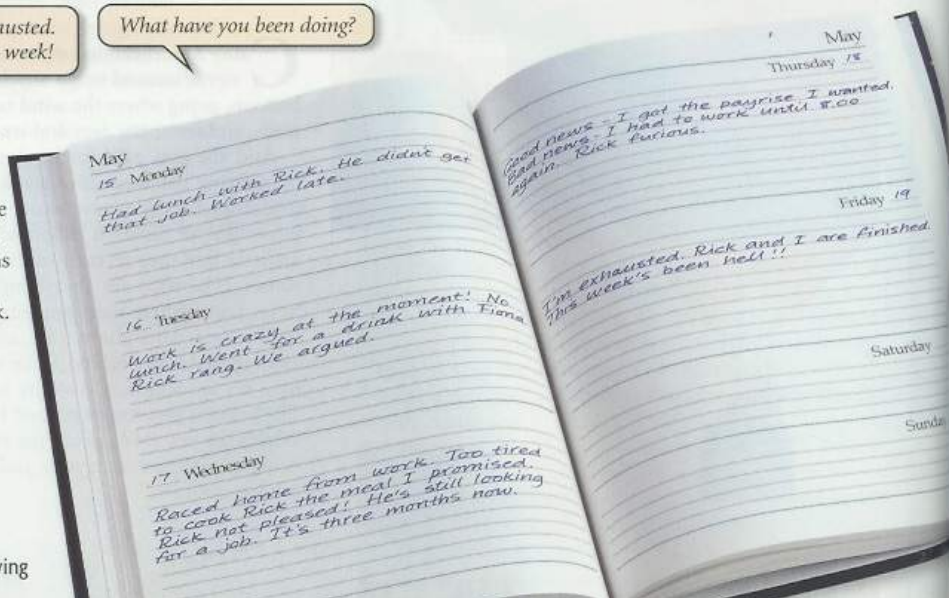 austed.
week!
What have you been doing?
May
15 Monday
Had lunch with Rick. He didn't get
that job. Worked late.
16 Tuesday
Work is crazy at the moment! No
lunch. Went for a drink with Fiona
Rick rang. We argued.
17 Wednesday
Raced home from work. Too tired
to cook Rick the meal I promised.
Rick not pleased! He's still looking
for a job. It's three months now.
May
Thursday 18
Good news - I got the payrise I wanted.
Bad news - I had to work until 8.00
again. Rick furious.
Friday 19
I'm exhausted. Rick and I are finished.
This week's been hell!!
Saturday
Sunda
ving